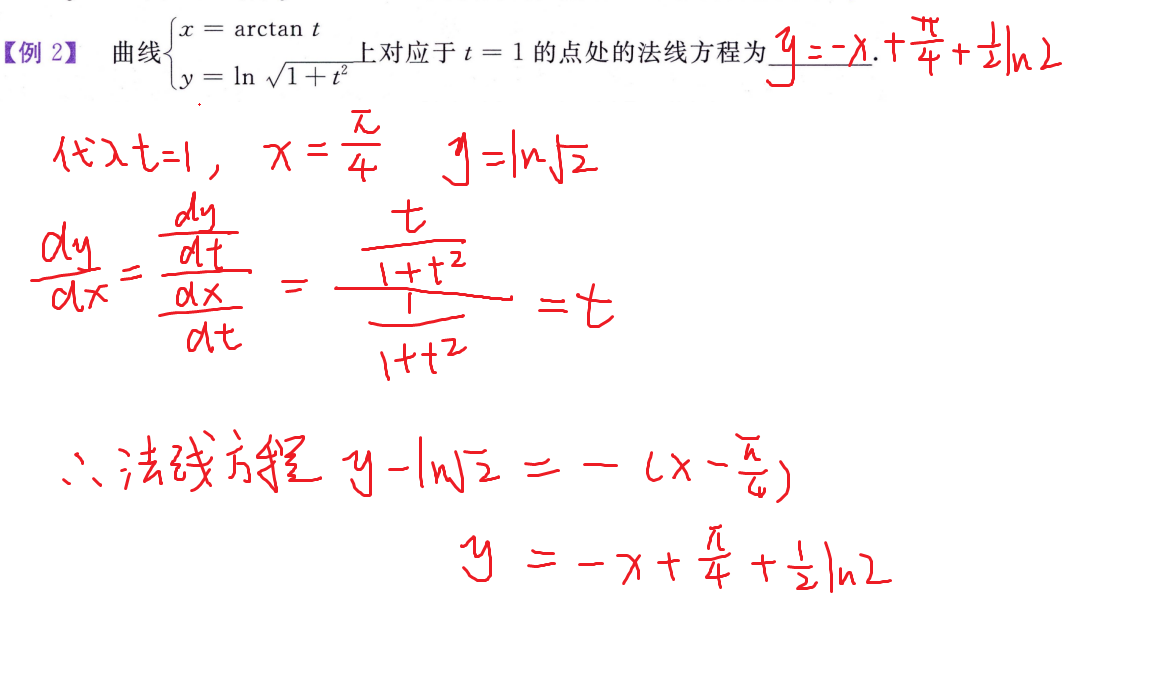 【例 2】 曲线{x = arctan t, y = ln √(1+t²) 上对应于 t = 1 的点处的法线方程为 y=-x.+π/4+1/2 ln2
代入t=1, x=π/4 y=ln√2
dy/dx = (dy/dt)/(dx/dt) = (t/(1+t²))/(1/(1+t²)) = t
∴法线方程 y-ln√2 = -(x-π/4)
y = -x+π/4+1/2 ln2